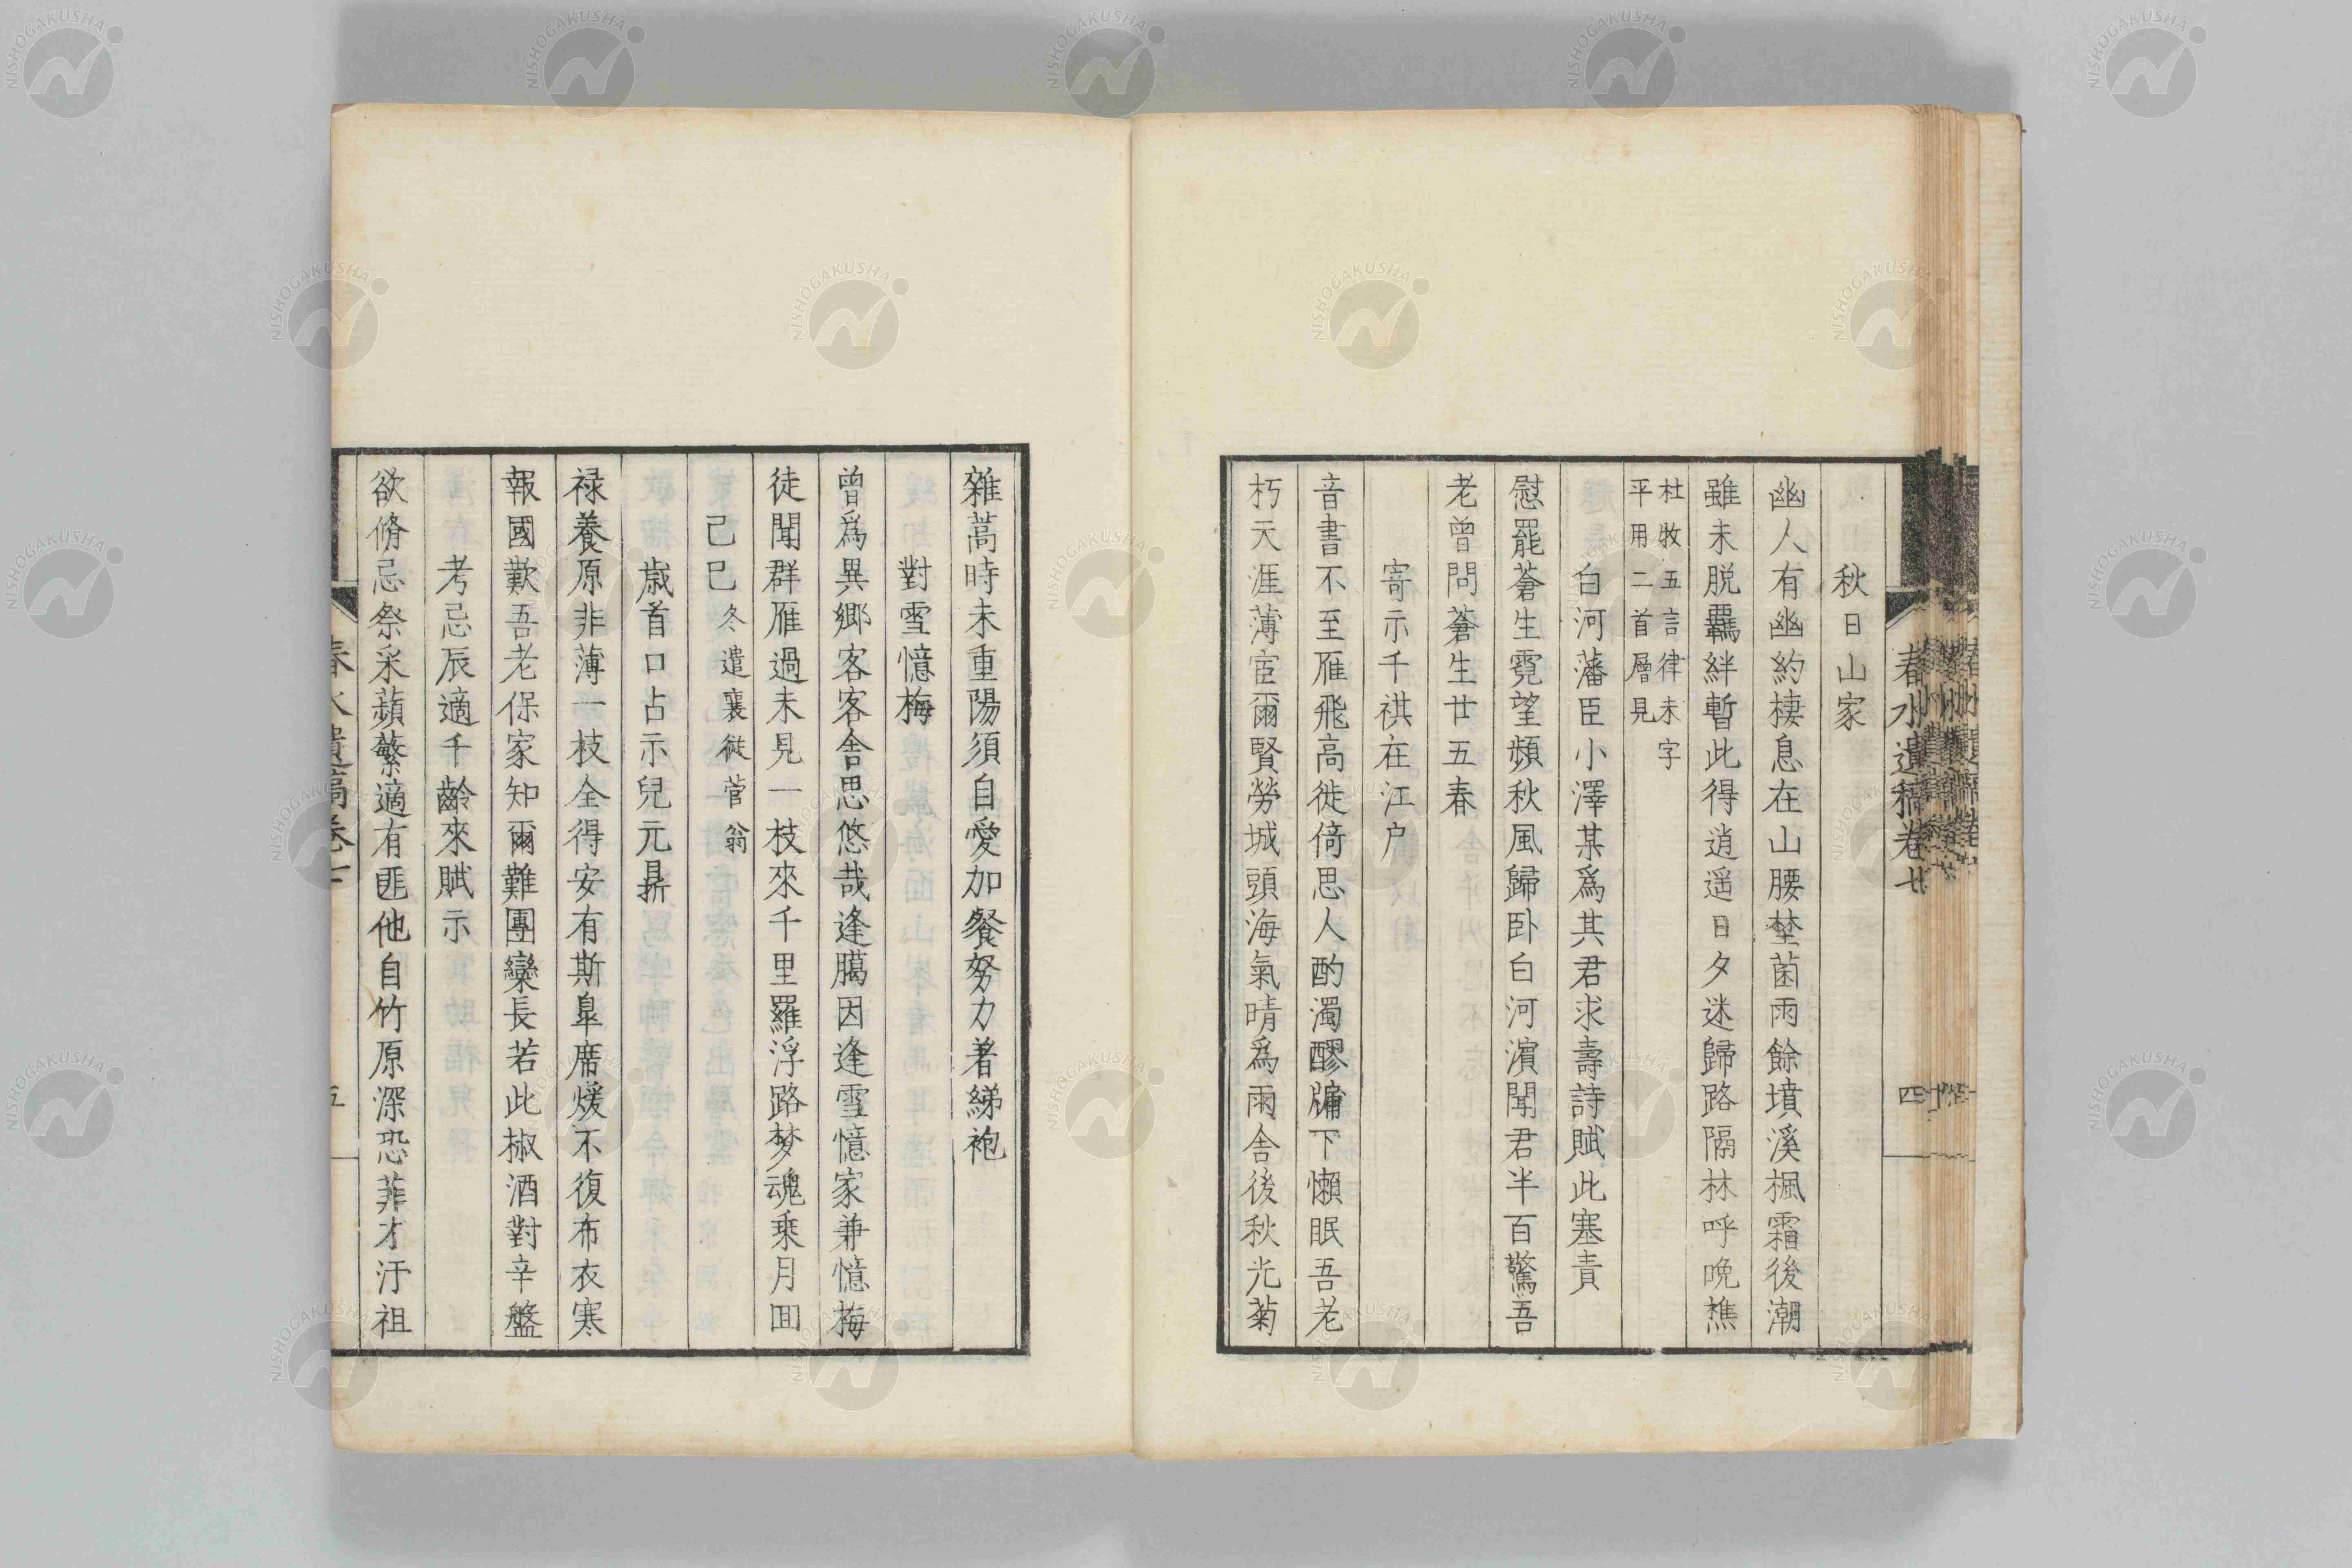 春水遺稿卷七
四
秋日山家
幽人有幽約棲息在山腰埜菌雨餘墳溪楓霜後潮
雖未脱羈絆暫此得逍遥日夕迷歸路隔林呼晩樵
杜牧五言律未字
平用二首層見
白河藩臣小澤某爲其君求壽詩賦此塞責
慰罷蒼生霓望頻秋風歸卧白河濵聞君半百驚吾
老曾問蒼生廿五春
寄示千祺在江户
音書不至雁飛高徙倚思人酌濁醪牖下懶眠吾老
朽天涯薄宦爾賢勞城頭海氣晴爲雨舎後秋光菊
雜蒿時未重陽須自愛加餐努力着綈袍
對雪憶梅
曾爲異鄉客客舎思悠哉逢臈因逢雪憶家兼憶梅
徒聞群雁過未見一枝來千里羅浮路梦魂乘月囬
己巳冬遣襄從菅翁
歳首口占示兒元鼎
禄養原非薄一枝全得安有斯臯席煖不復布衣寒
報國歎吾老保家知爾難團欒長若此椒酒對辛盤
考忌辰適千齡來賦示
欲脩忌祭采蘋蘩適有匪他自竹原深恐菲才汙祖
春水遺稿卷七
五
NISHOGAKUSHA